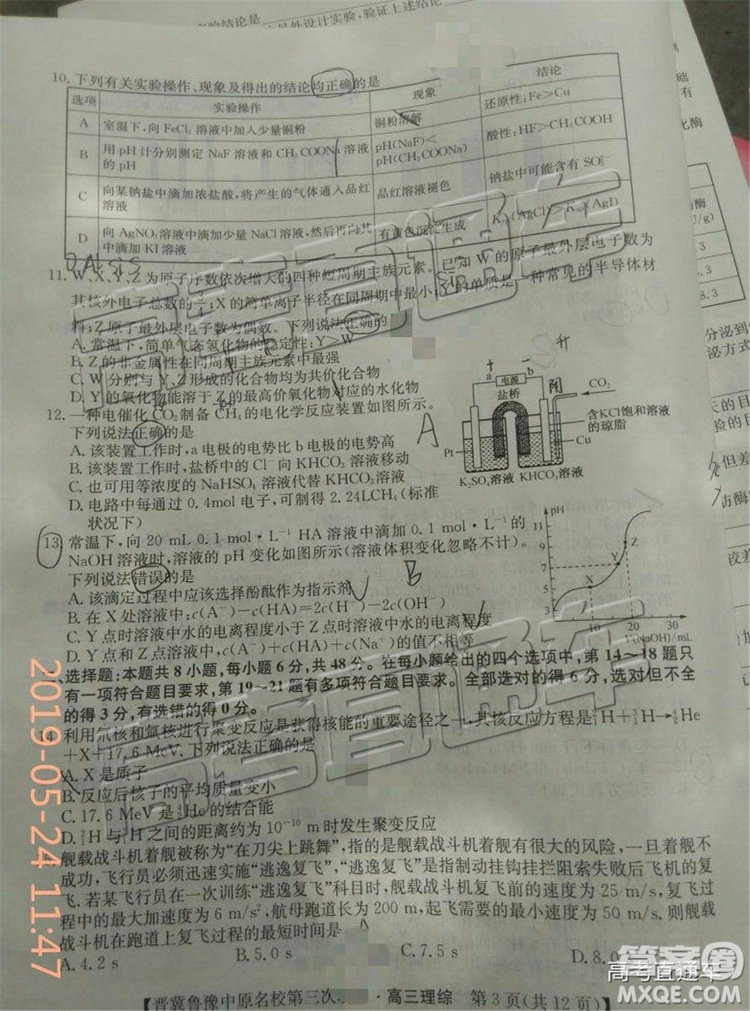 实验结论是
另外设计实验,验证上述结论
10. 下列有关实验操作、现象及得出的结论均正确的是
选项 实验操作 现象 结论
A 室温下,向 FeCl₃ 溶液中加入少量铜粉 铜粉溶解 还原性:Fe>Cu
B 用 pH 计分别测定 NaF 溶液和 CH₃COONa 溶液的 pH pH(NaF)<pH(CH₃COONa) 酸性:HF>CH₃COOH
C 向某钠盐中滴加浓盐酸,将产生的气体通入品红溶液 品红溶液褪色 钠盐中可能含有
D 向 AgNO₃ 溶液中滴加少量 NaCl 溶液,然后再向其中滴加 KI 溶液 有黄色沉淀生成
11. W、X、Y、Z 为原子序数依次增大的四种短周期主族元素。已知 W 的原子最外层电子数为
其核外电子总数的 ;X 的简单离子半径在同周期中最小;Y 的单质是一种常见的半导体材
料;Z 原子最外层电子数为偶数。下列说法正确的
A. 常温下,简单气态氢化物的稳定性:Y>W
B. Z 的非金属性在同周期主族元素中最强
C. W 分别与 Y、Z 形成的化合物均为共价化合物
D. Y 的氧化物能溶于 Z 的最高价氧化物对应的水化物
12. 一种电催化 CO₂ 制备 CH₄ 的电化学反应装置如图所示。
下列说法正确的是
A. 该装置工作时,a 电极的电势比 b 电极的电势高
B. 该装置工作时,盐桥中的 Cl⁻ 向 KHCO₃ 溶液移动
C. 也可用等浓度的 NaHSO₄ 溶液代替 KHCO₃ 溶液
D. 电路中每通过 0.4mol 电子,可制得 2.24LCH₄(标准
状况下)
A
a
电源
b
盐桥
CO₂
含KCl饱和溶液
的琼脂
Pt
Cu
K₂SO₄溶液 KHCO₃溶液
13. 常温下,向 20 mL 0.1 mol·L⁻¹ HA 溶液中滴加 0.1 mol·L⁻¹ 的
NaOH 溶液时,溶液的 pH 变化如图所示(溶液体积变化忽略不计)。
下列说法错误的是
B
A. 该滴定过程中应该选择酚酞作为指示剂
B. 在 X 处溶液中:c(A⁻)-c(HA)=2c(H⁺)-2c(OH⁻)
C. Y 点时溶液中水的电离程度小于 Z 点时溶液中水的电离程度
D. Y 点溶液中,c(A⁻)+c(HA)+c(Na⁺) 的值不相等
pH
11
9
7
5
3
X
Y
Z
10 20 30
V(NaOH)/mL
选择题:本题共 8 小题,每小题 6 分,共 48 分。在每小题给出的四个选项中,第 14~18 题只
有一项符合题目要求,第 19~21 题有多项符合题目要求。全部选对的得 6 分,选对但不全
的得 3 分,有选错的得 0 分。
14. 利用氘核和氚核进行聚变反应是获得核能的重要途径之一,其核反应方程是²₁H+³₁H→⁴₂He
+X+17.6 MeV. 下列说法正确的是
A. X 是质子
B. 反应后核子的平均质量变小
C. 17.6 MeV 是⁴₂He 的结合能
D. ²₁H 与³₁H 之间的距离约为 10⁻¹⁰ m 时发生聚变反应
舰载战斗机着舰被称为“在刀尖上跳舞”,指的是舰载战斗机着舰有很大的风险,一旦着舰不
成功,飞行员必须迅速实施“逃逸复飞”,“逃逸复飞”是指制动挂钩挂拦阻索失败后飞机的复
飞. 若某飞行员在一次训练“逃逸复飞”科目时,舰载战斗机复飞前的速度为 25 m/s,复飞过
程中的最大加速度为 6 m/s²,航母跑道长为 200 m,起飞需要的最小速度为 50 m/s. 则舰载
战斗机在跑道上复飞过程的最短时间是
A. 4.2 s B. 5.0 s C. 7.5 s D. 8.0
【晋冀鲁豫中原名校第三次 · 高三理综 第 3 页(共 12 页)】
2019-05-24 11:47
高考直通车
高考直通车
高考直通车
高考直通车
答案圈
MXQE.COM